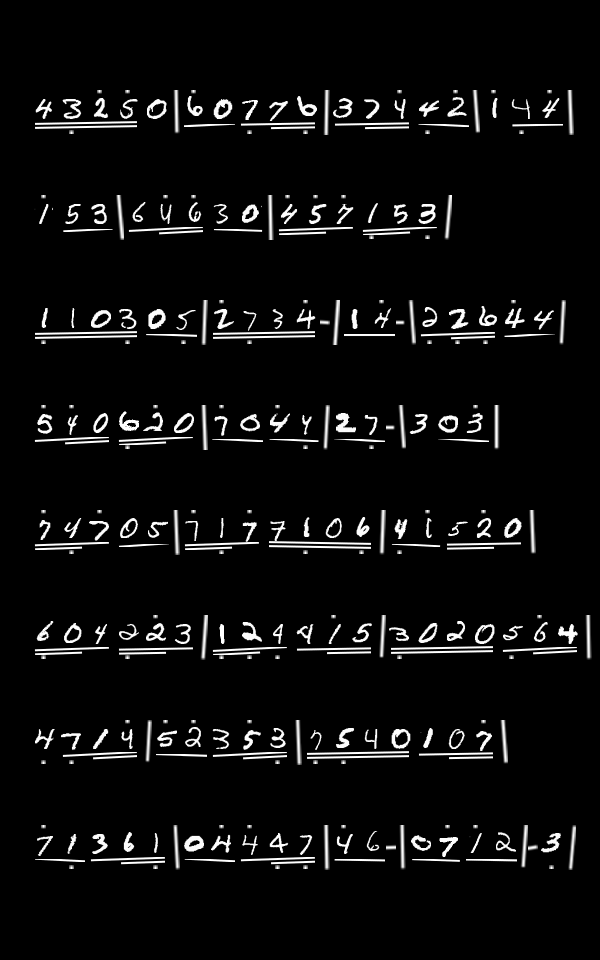 43250|60776|37442|144
153|64630|457153
110305|2734-|14-|22644
540620|7044|27-|303
74705|7177106|41520
604223|124415|3020564
4714|52353|7540107
71361|04447|46-|0712|-3|